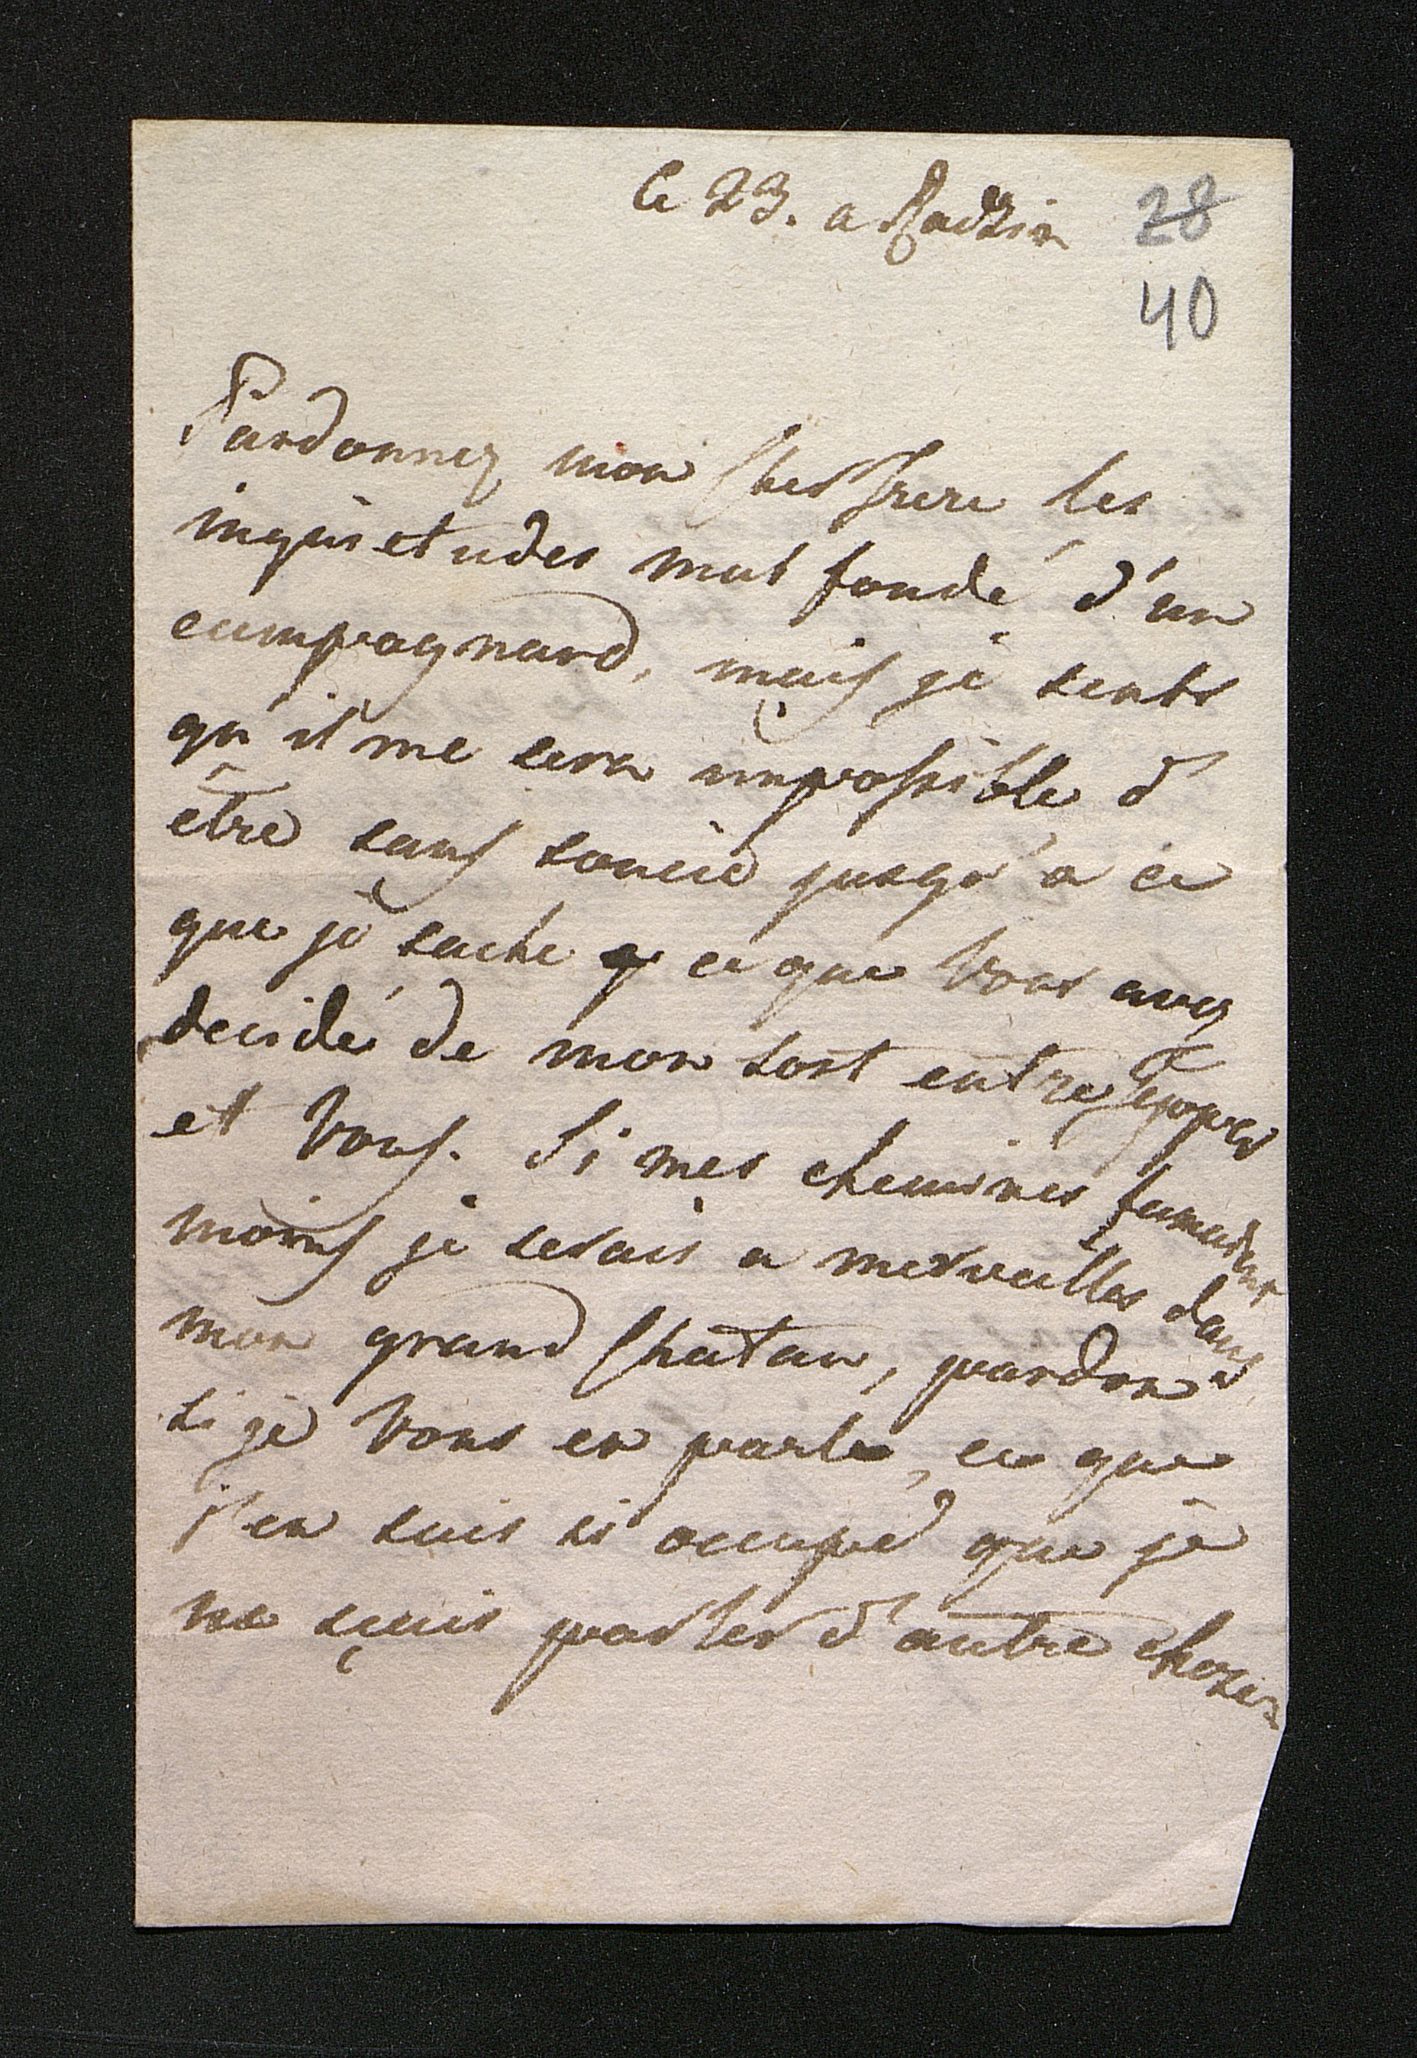 Ce 23. a Radzin
28
40
Pardonnez mon Cher Frere les
inquietudes mal fondé d'un
campagnard, mais je sents
qu'il me sera impossible d
être sans soucie jusqu'a ce
que je sache ce que Vous avez
decidé de mon sort entre
et Vous. Si mes cheminés fumaient
moins je serais a merveilles dans
mon grand Chatau, pardon
si je Vous en parle, ce que
j'en suis si occupé que je
ne sçais parler d'autre choses